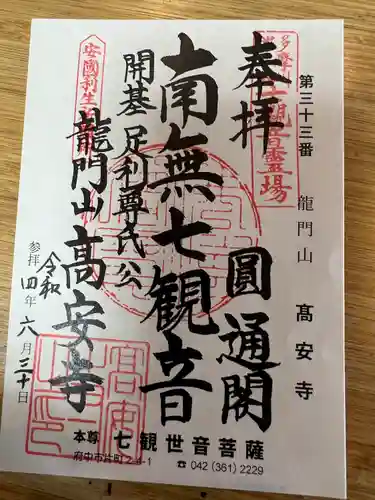 第三十三番 龍門山 高安寺
奉拝 圓通閣
南無七観音
開基 足利尊氏公
龍門山 高安寺
参拝 令和四年六月三十日
本尊 七観世音菩薩
府中市片町2-4-1 ☎ 042 (361) 2229